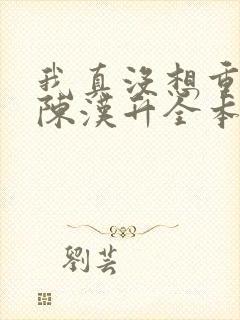 我真没想重
陈汉升全本
刘芸